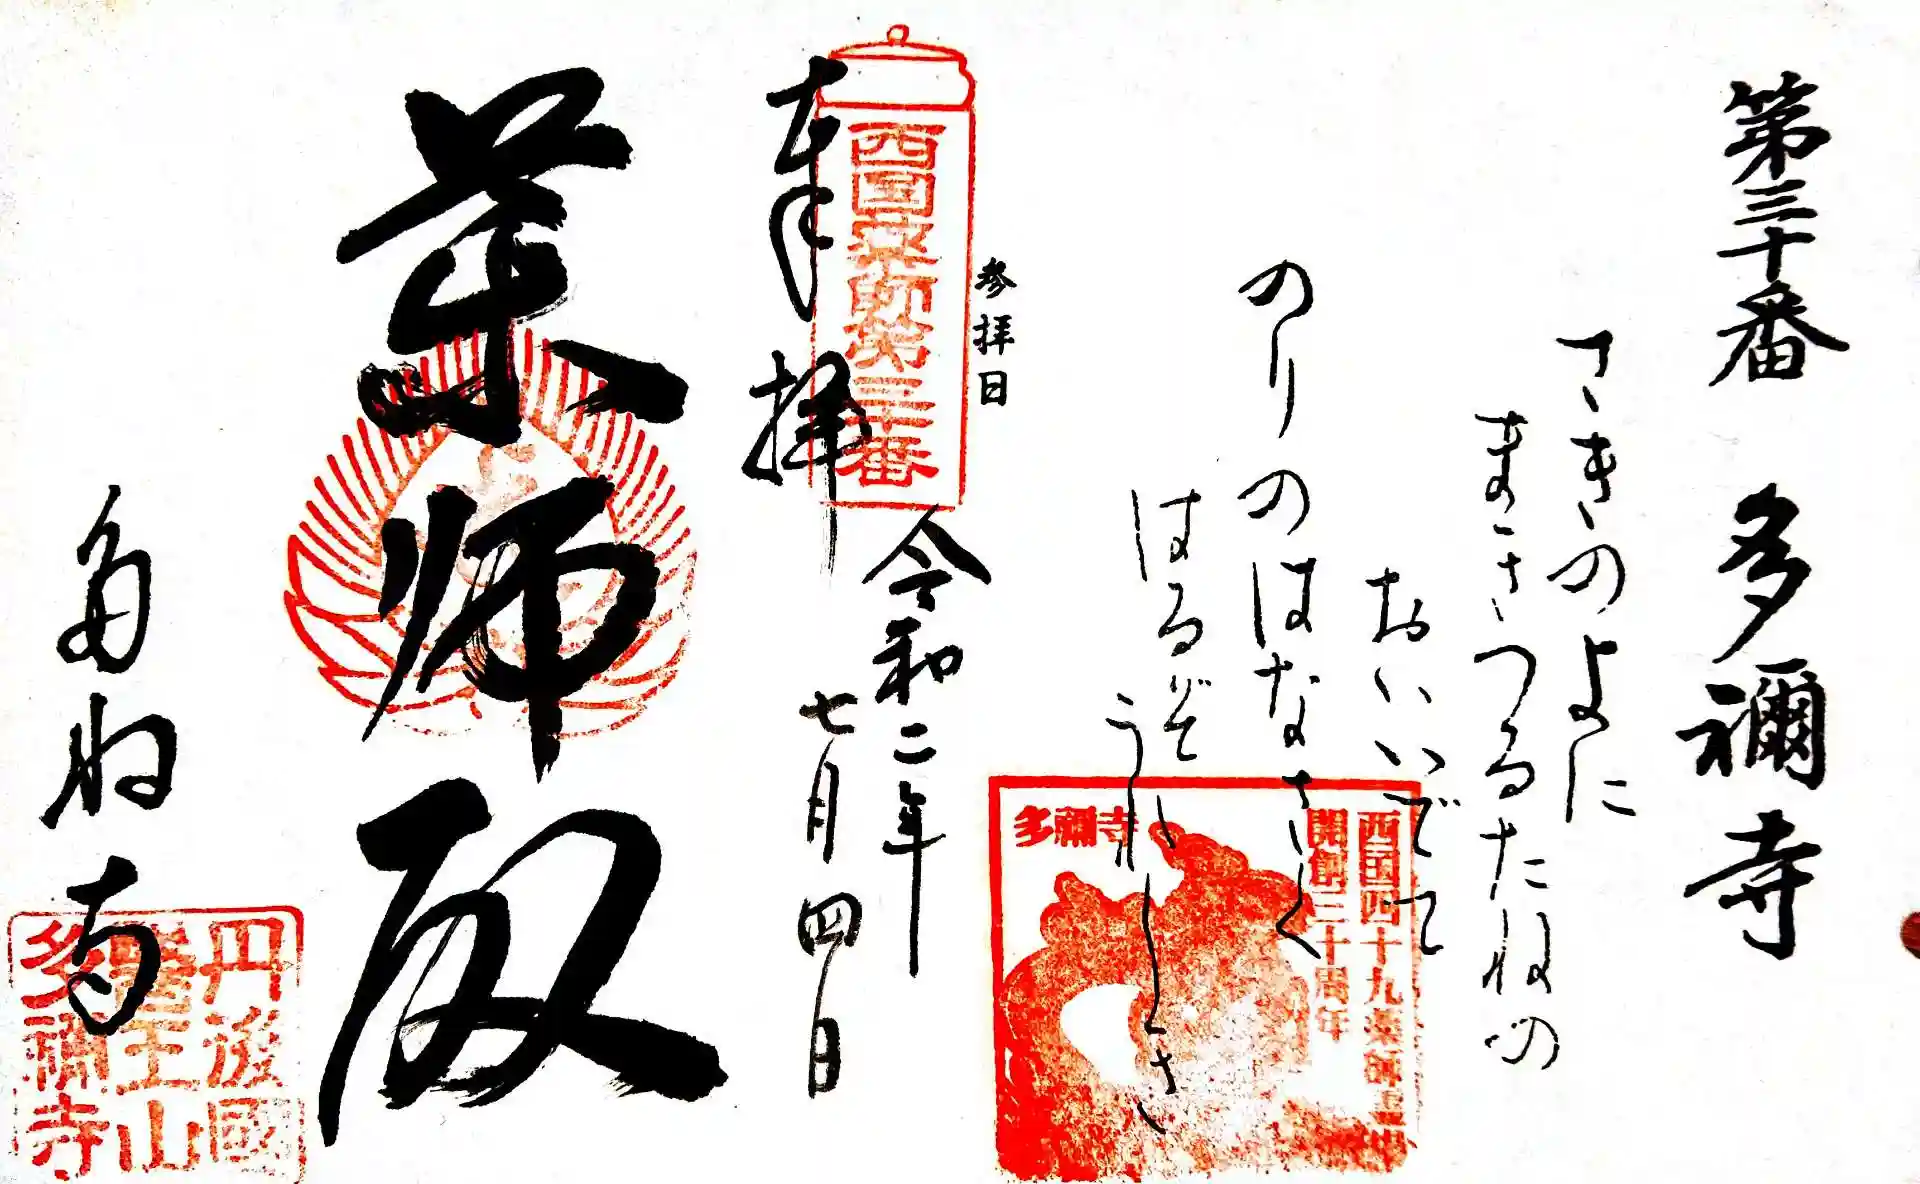 第三十番 多禰寺
さきのよに
まきつるたねの
おいいでて
のりのはなさく
はるぞ
うれしき
参拝日
西国薬師第三十番
奉拝
令和二年
七月四日
西国四十九薬師霊場
開創三十周年
多禰寺
薬师殿
多祢寺
丹後國
醫王山
多禰寺